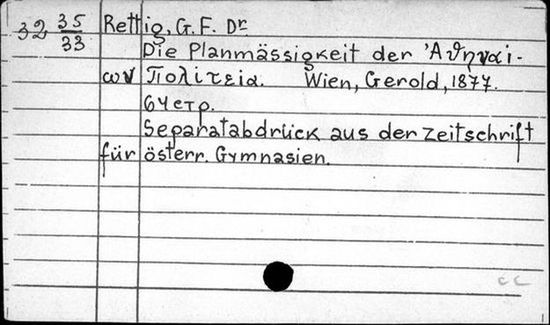 32 35/33 Rettig, G. F. Dr
Die Planmässigkeit der 'Αθηναί-
ων Πολίτεια. Wien, Gerold, 1877.
64 стр.
Separatabdrück aus der Zeitschrift
für österr. Gymnasien.
cc